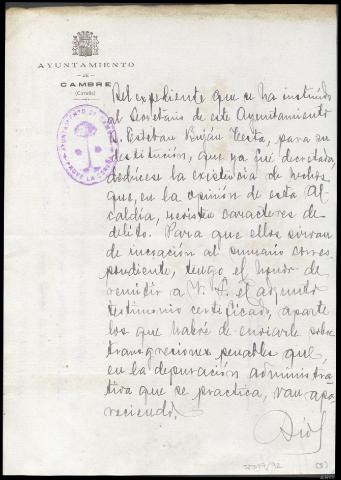 AYUNTAMIENTO
DE
CAMBRE
(Coruña)
AYUNTAMIENTO DE
Del expediente que se ha instruido
al Secretario de este Ayuntamiento
D. Esteban Buján Testa, para su
destitución, que ya fué decretada,
dedúcese la existencia de hechos
que, en la opinión de esta Al-
caldía, revisten caracteres de
delito. Para que ellos sirvan
de incoación al sumario corres-
pondiente, tengo el honor de
remitir a V. S. el adjunto
testimonio certificado, aparte
los que habré de enviarle sobre
transgresiones penables que
en la depuración administra-
tiva que se practica, van apa-
reciendo.
Dios